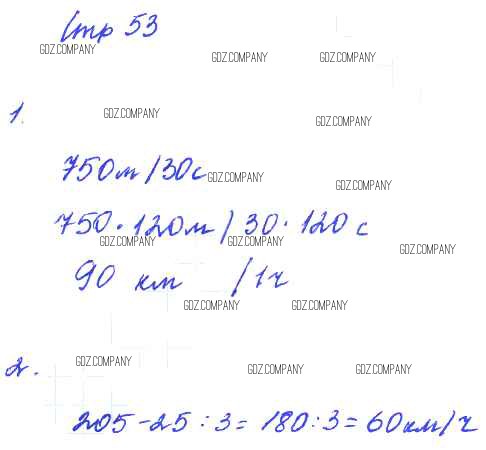 Стр 53
GDZ.COMPANY GDZ.COMPANY GDZ.COMPANY
1. GDZ.COMPANY GDZ.COMPANY
750м/30с GDZ.COMPANY
GDZ.COMPANY
750·120м/30·120с
GDZ.COMPANY GDZ.COMPANY GDZ.COMPANY
90 км /1ч
GDZ.COMPANY GDZ.COMPANY
2. GDZ.COMPANY GDZ.COMPANY GDZ.COMPANY
205-25:3=180:3=60км/ч